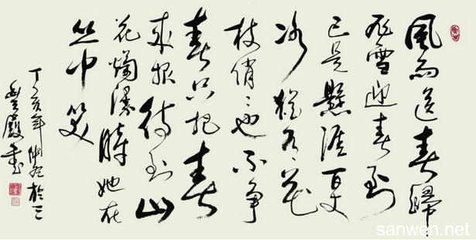 風雨送春歸
飛雪迎春到
已是懸崖百丈
冰猶有花
枝俏俏也不爭
春只把春
來報待到山
花爛漫時她在
丛中笑
丁亥年 於三
sanwen.net